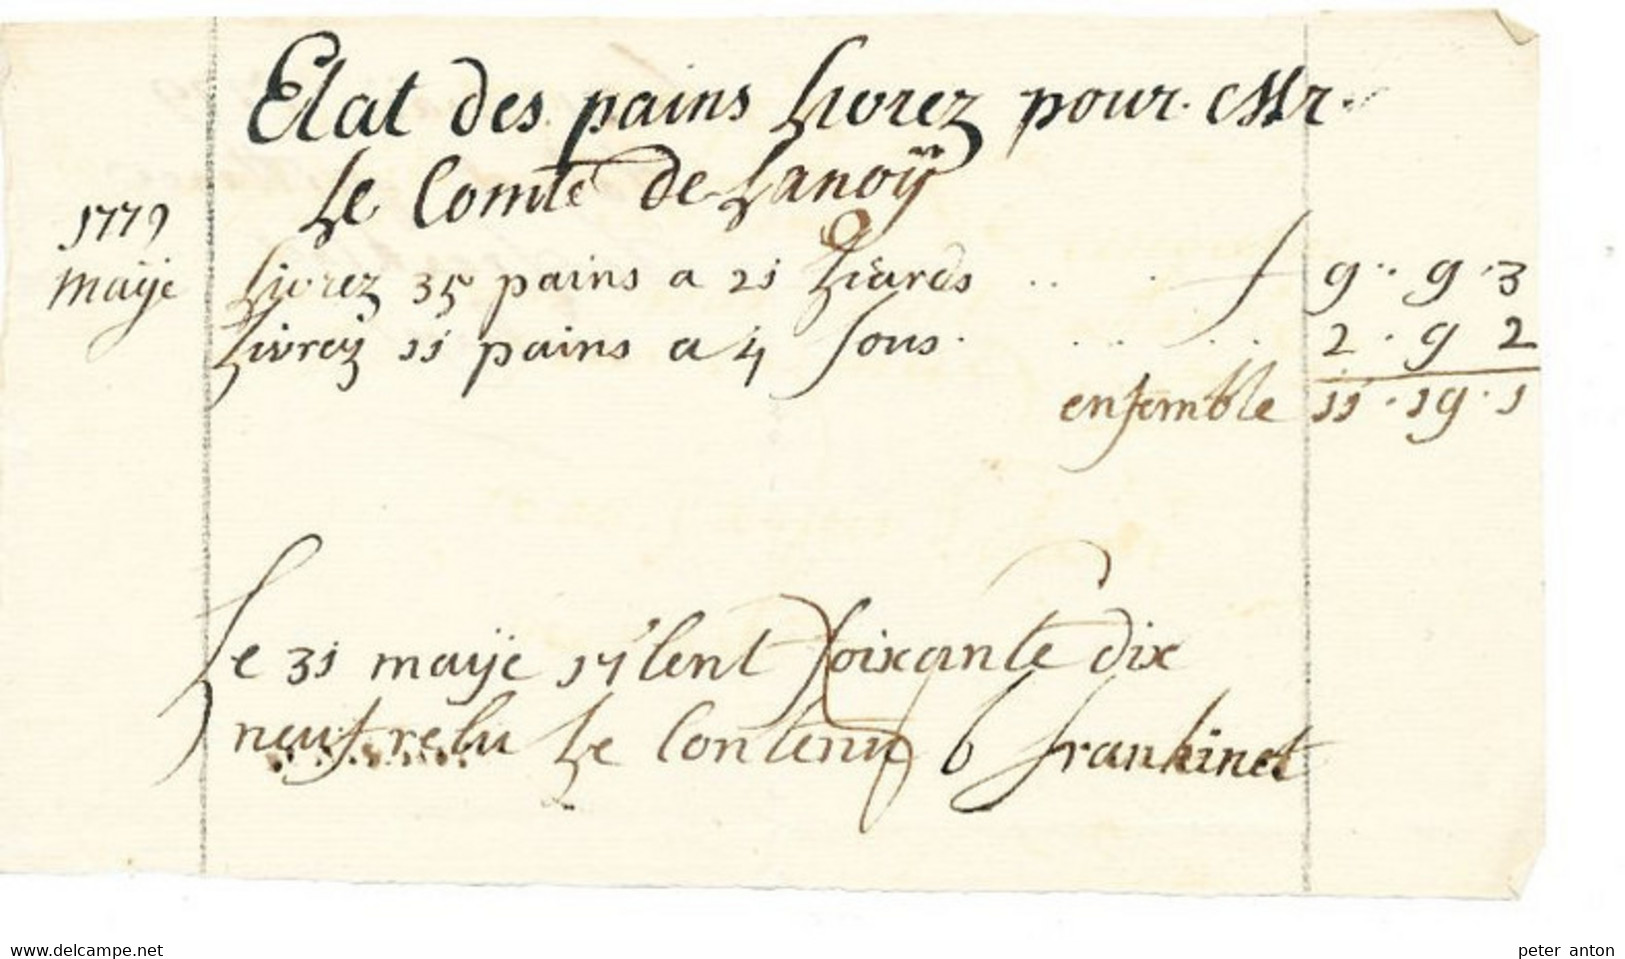 Etat des pains Livrez pour Mr
Le Comte de Lanoÿ
1779
maÿe Livrez 35 pains a 21 Liards f 9 9 3
Livrez 11 pains a 4 sous 2 9 2
ensemble 11 19 1
Le 31 maÿe 17 cent soixante dix
neuf relu Le Contenu b frankinet
www.delcampe.net peter anton